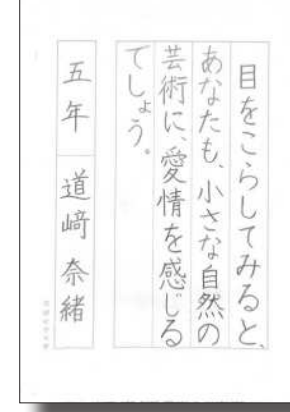 目をこらしてみると、
あなたも、小さな自然の
芸術に、愛情を感じる
でしょう。
五年 道﨑 奈緒